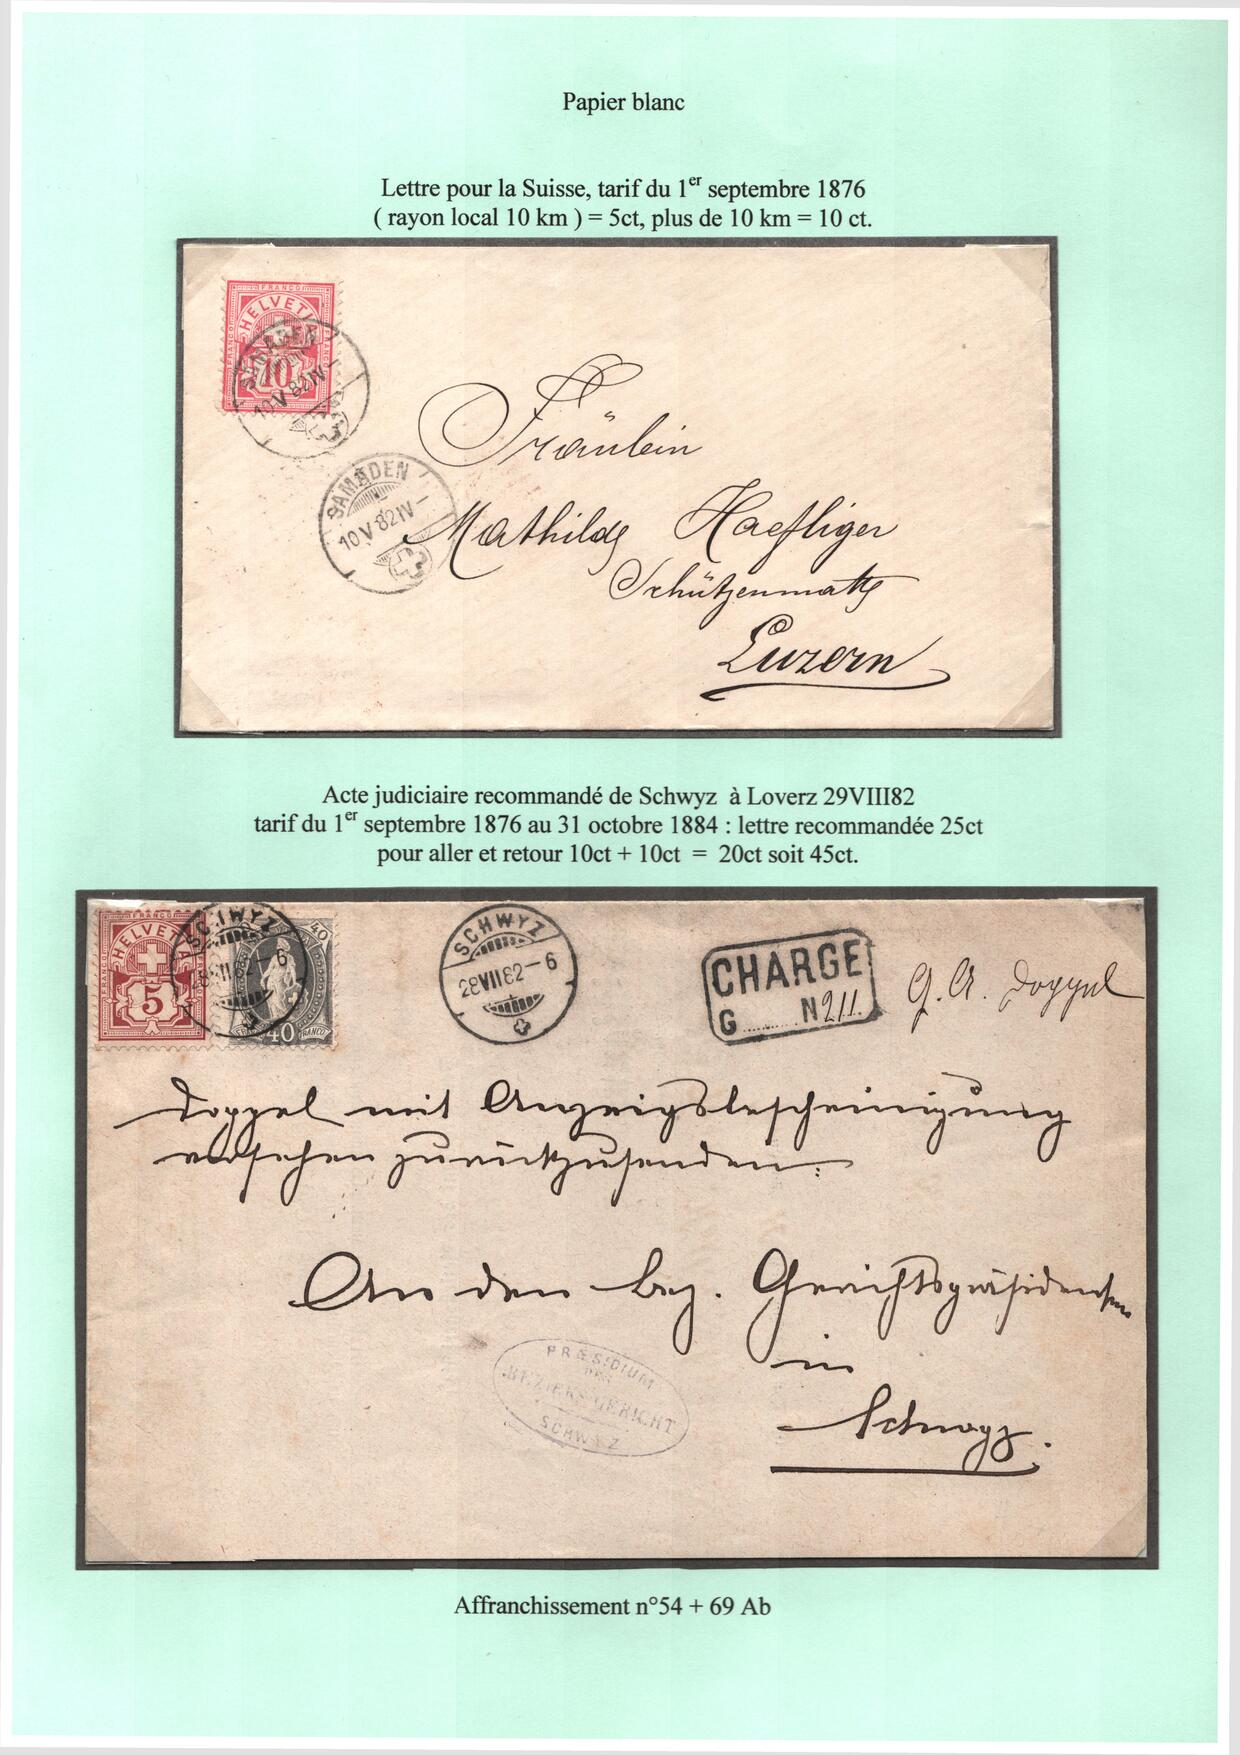 Papier blanc
Lettre pour la Suisse, tarif du 1er septembre 1876
( rayon local 10 km ) = 5ct, plus de 10 km = 10 ct.
FRANCO
HELVETIA
10
SAMADEN
10 V 82 IV
SAMADEN
10 V 82 IV -
Fräulein
Mathilde Haefliger
Schützenmatte
Luzern
Acte judiciaire recommandé de Schwyz à Loverz 29VIII82
tarif du 1er septembre 1876 au 31 octobre 1884 : lettre recommandée 25ct
pour aller et retour 10ct + 10ct = 20ct soit 45ct.
FRANCO
HELVETIA
5
40
40
FRANCO
SCHWYZ
82-6
SCHWYZ
28VII82-6
CHARGE
G ....... N 211.
G. A. Doppel
Doppel mit Anzeigsbescheinigung
versehen zurückzusenden.
An den Bez. Gerichtspräsidenten
in
Schwyz.
PRÆSIDIUM
DES
BEZIRKSGERICHT
SCHWYZ
Affranchissement n°54 + 69 Ab